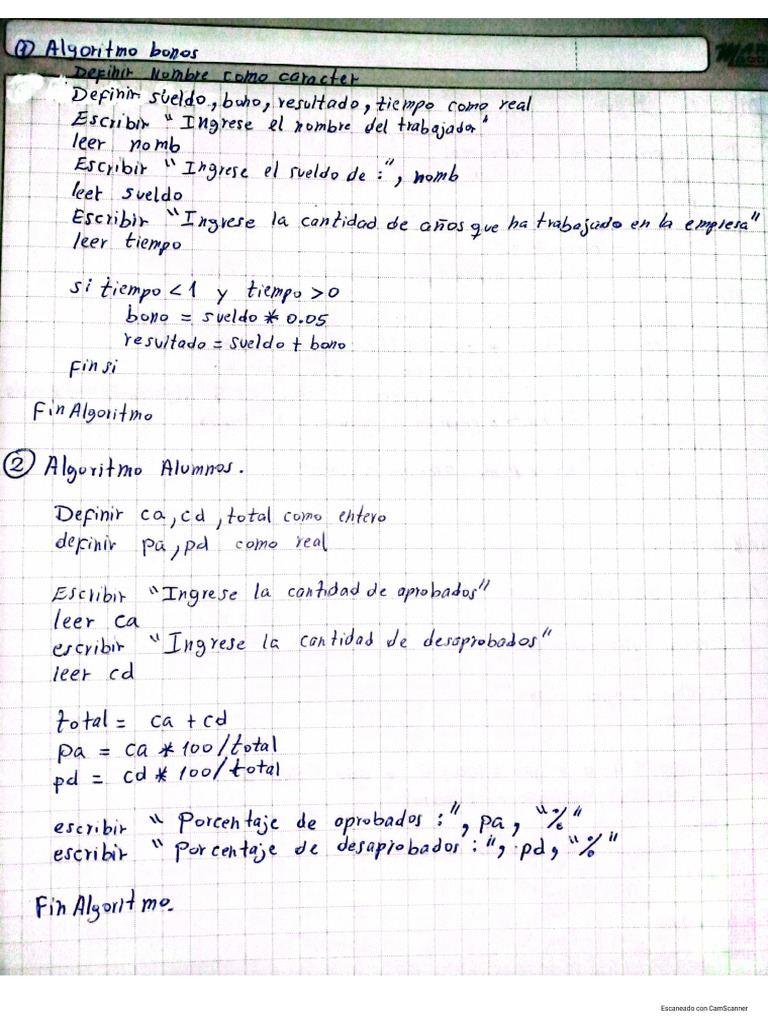 ① Algoritmo bonos
Definir Nombre como caracter
Definir sueldo, bono, resultado, tiempo como real
Escribir "Ingrese el nombre del trabajador"
leer nomb
Escribir "Ingrese el sueldo de :", nomb
leer sueldo
Escribir "Ingrese la cantidad de años que ha trabajado en la empresa"
leer tiempo
si tiempo < 1 y tiempo > 0
bono = sueldo * 0.05
resultado = sueldo + bono
Fin si
Fin Algoritmo
② Algoritmo Alumnos.
Definir ca, cd, total como entero
definir pa, pd como real
Escribir "Ingrese la cantidad de aprobados"
leer ca
escribir "Ingrese la cantidad de desaprobados"
leer cd
total = ca + cd
pa = ca * 100/total
pd = cd * 100/total
escribir "Porcentaje de aprobados :", pa, "%"
escribir "Porcentaje de desaprobados :", pd, "%"
Fin Algoritmo.
Escaneado con CamScanner